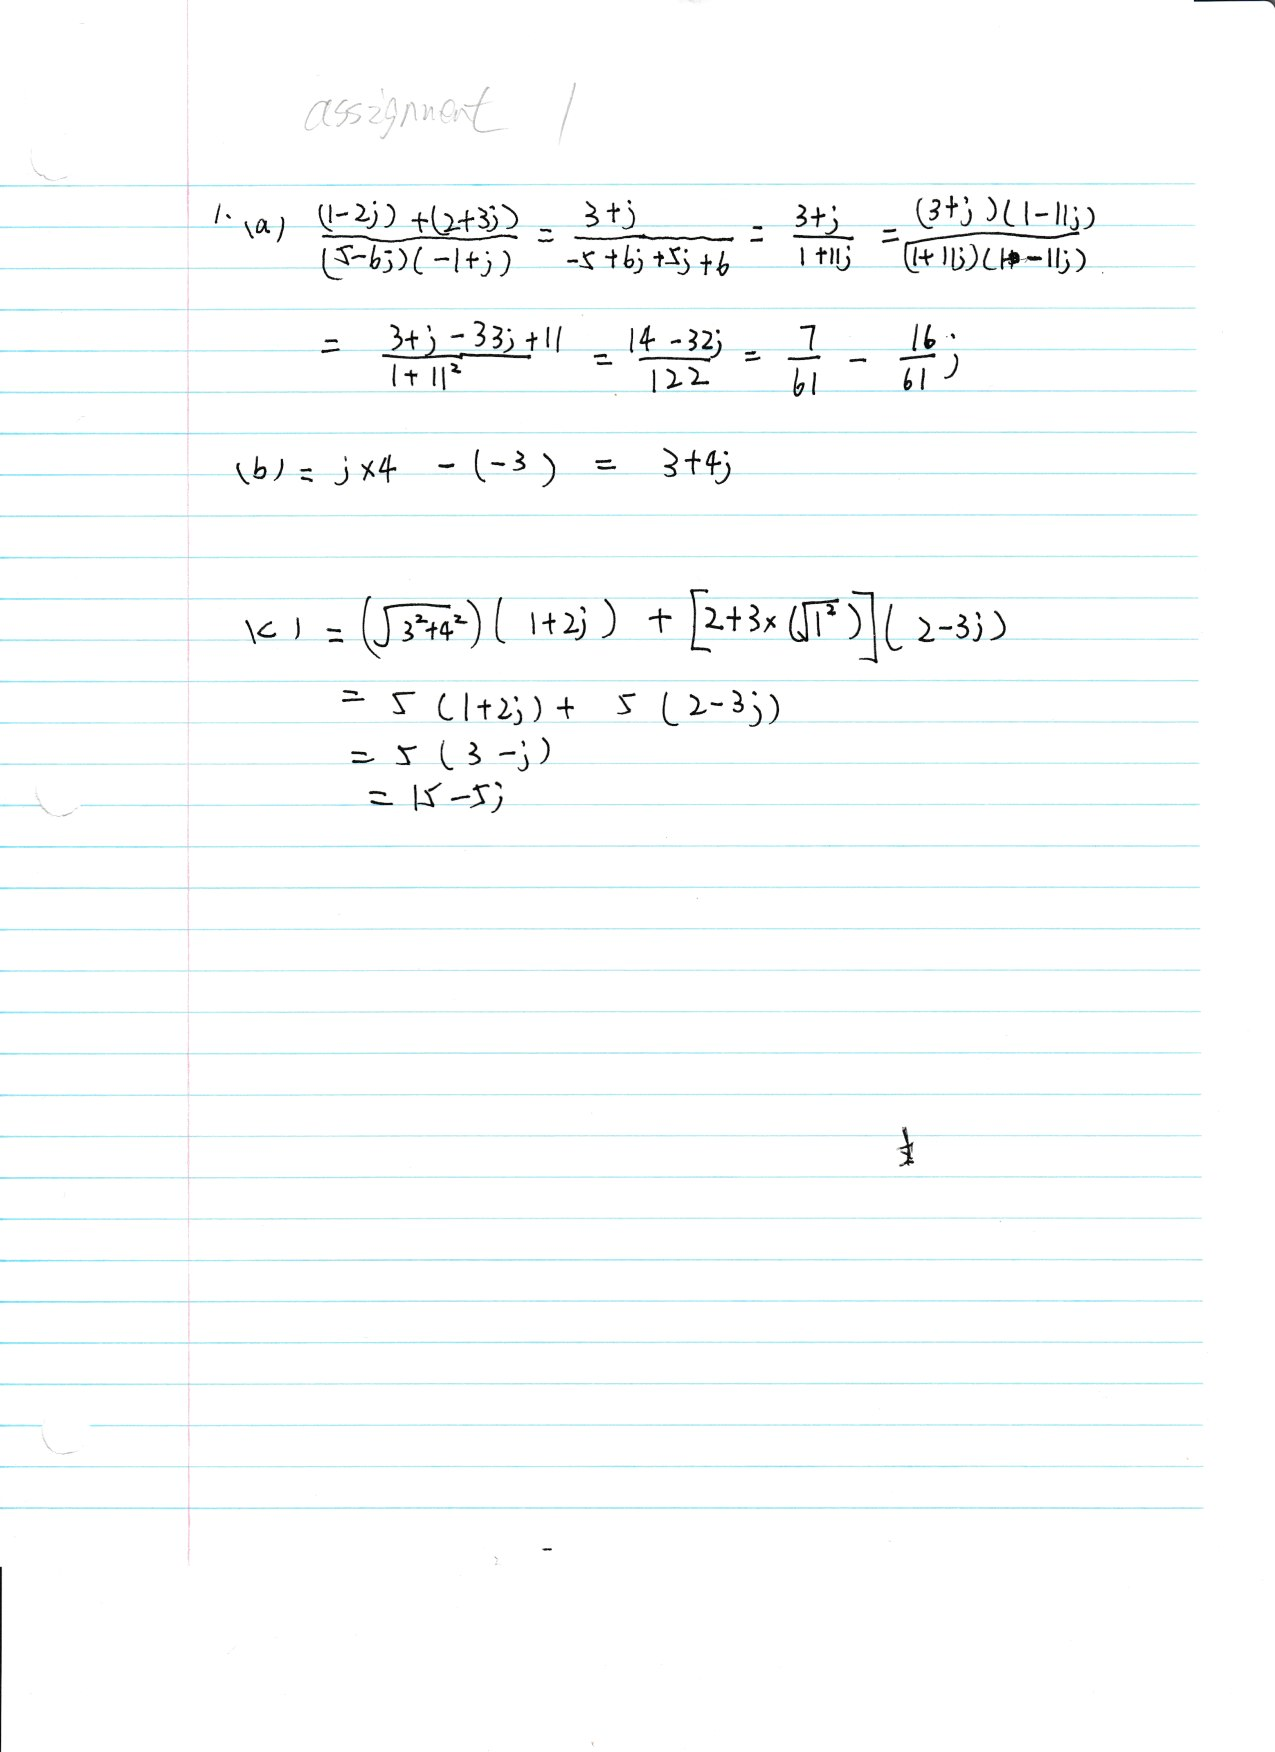 assignment 1
1. (a) ((1-2j)+(2+3j))/((5-6j)(-1+j)) = (3+j)/(-5+6j+5j+6) = (3+j)/(1+11j) = ((3+j)(1-11j))/((1+11j)(1-11j))
= (3+j-33j+11)/(1+11²) = (14-32j)/122 = 7/61 - 16/61 j
(b) = j×4 -(-3) = 3+4j
(c) = (√(3²+4²))(1+2j) + [2+3×(√(1²))](2-3j)
= 5(1+2j)+ 5(2-3j)
= 5(3-j)
= 15-5j